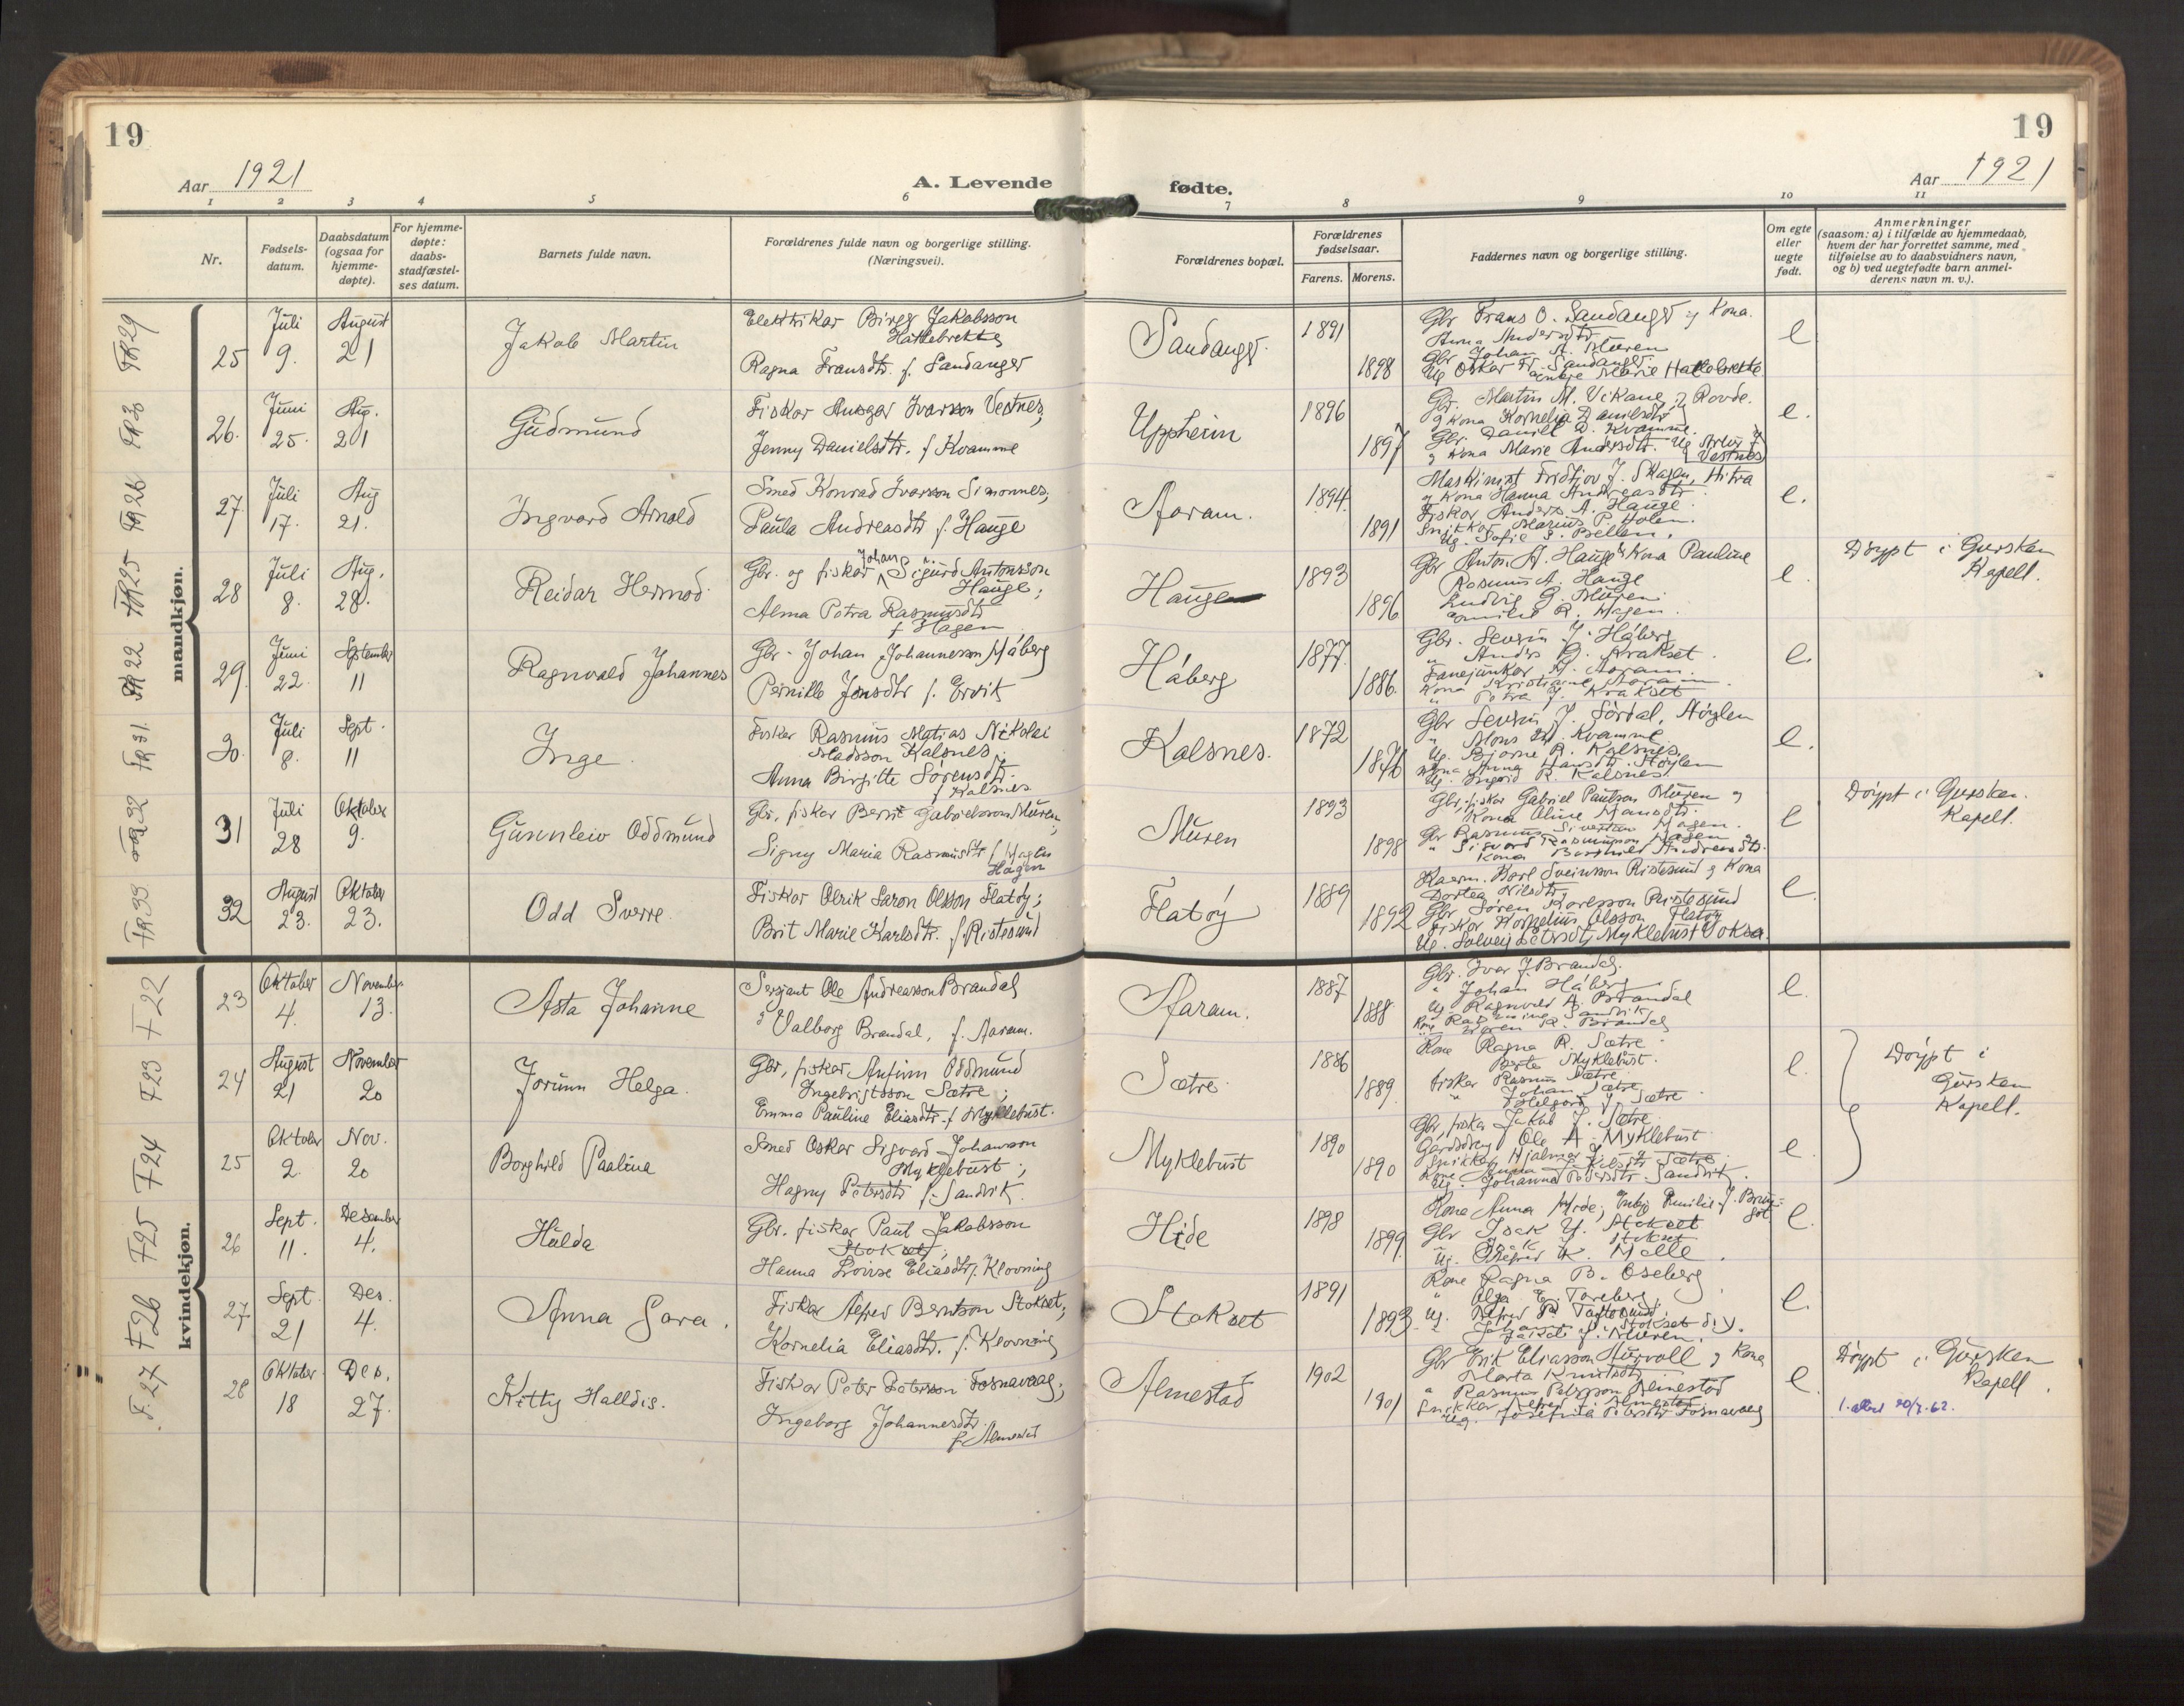 19
19
Aar 1921
A. Levende
fødte.
Aar 1921
1 2 3 4 5 6 7 8 9 10 11
Nr.
Fødsels-
datum.
Daabsdatum
(ogsaa for
hjemme-
døpte).
For hjemme-
døpte:
daabs-
stadfæstel-
ses datum.
Barnets fulde navn.
Forældrenes fulde navn og borgerlige stilling.
(Næringsvei).
Forældrenes bopæl.
Forældrenes
fødselsaar.
Farens. Morens.
Faddernes navn og borgerlige stilling.
Om egte
eller
uegte
født.
Anmerkninger
(saasom: a) i tilfælde av hjemmedaab,
hvem der har forrettet samme, med
tilføielse av to daabsvidners navn,
og b) ved uegtefødte barn anmel-
derens navn m. v.).
mandkjøn.
25
Juli
9.
August
21
Jakob Martin
Elektrikar Birger Jakobsson
Hatlebrekke
Ragna Fransdtr. f. Sandanger
Sandanger
1891
1898
Gbr Frans O. Sandanger og Kona
Anna Andersdtr
Gbr Johan A. Muren
Ug Oskar Fr. Sandanger
Marie Hatlebrekke
e
26.
Juni
25.
Aug.
21
Gudmund
Fiskar Ansgar Ivarson Vestnes,
Jenny Danielsdtr. f Kvamme
Uppheim
1896
1897
Gbr. Martin M. Vikane, Rovde.
og Kona Kornelia Danielsdtr
Gbr. Daniel D. Kvamme.
og Kona Marie Andersdtr. Ug
Vestnes
e.
27.
Juli
17.
Aug
21.
Ingvard Arnold
Smed Konrad Ivarson Simonnes,
Paula Andreasdtr f. Hauge
Aaram.
1894.
1891
Maskinist Fridtjov J. Skagen, Hitra
og Kona Hanna Andreasdtr
Fiskar Anders A. Hauge
Snikkar Marius P. Holen.
Ug. Sofie
e.
28
Juli
8.
Aug.
28.
Reidar Hermod
Gbr. og fiskar Johan Sigurd Antonsson
Hauge;
Alma Petra Rasmusdtr
f Hagen
Hauge
1893
1896
Gbr Anton A. Hauge & Kona Pauline
Rasmus A. Hauge
Ludvig G. Muren
R. Hagen.
e.
Døypt i Gursken
Kapell.
29.
Juni
22.
September
11
Ragnvald Johannes
Gbr. Johan Johannesson Håberg
Pernille Jonsdtr f. Ervik
Håberg
1877.
1886.
Gbr. Severin J. Håberg
" Anders G. Krakset
Fanejunkar A. Aaram.
Kona Kristiane Aaram
" Petra J. Krakset
e.
30.
Juli
8.
Sept.
11
Inge
Fiskar Rasmus Matias Nikolai
Madsson Kalsnes.
Anna Birgitte Sørensdtr.
f Kalsnes
Kalsnes.
1872
1876
Gbr Severin J. Sørdal, Støylen
" Mons M. Kvamme
Ug. Bjarne R. Kalsnes.
Kona Anna Hansdtr. Støylen
Ug. Ingrid R. Kalsnes.
e.
31
Juli
28
Oktober
9.
Gunnleiv Oddmund
Gbr, fiskar Bernt Gabrielsson Muren,
Signy Maria Rasmusdtr f. Hagen
Hagen
Muren
1893
1898
Gbr, fiskar Gabriel Paulson Muren og
Kona Oline Hansdtr.
Gbr Rasmus Sivertson Hagen.
" Sigvard Rasmusson Hagen og
Kona Borghild Andreasdtr.
e
Døypt i Gursken.
Kapell.
32
August
23.
Oktober
23.
Odd Sverre.
Fiskar Olrik Saron Olsson Flatøy;
Brit Marie Karlsdtr. f. Ristesund
Flatøy
1889
1892
Kaarm. Karl Sveinsson Ristesund og Kona
Dortea Nilsdtr,
Gbr Søren Karlsson Ristesund
Fiskar Kornelius Olsson Flatøy
Ug. Solveig Petersdtr, Myklebust Voksa.
e.
kvindekjøn.
23
Oktober
4.
November
13.
Asta Johanne
Sersjant Ole Andreasson Brandal
og Valborg Brandal, f. Aaram.
Aaram.
1887
1888
Gbr. Ivar J. Brandal.
" Johan Håberg.
Ug. Ragnvald A. Brandal
Kona Sandvik
" Karen R. Brandal
e.
24
August
21
November
20
Jorunn Helga.
Gbr, fiskar Anfinn Oddmund
Ingebrigtsson Sætre;
Emma Pauline Eliasdtr. f. Myklebust.
Sætre.
1886
1889.
Kone Ragna R. Sætre
" Berte Myklebust.
Fiskar Rasmus Sætre
" Johan Sætre
" Helgard J. Sætre
e.
Døypt i
Gursken
Kapell.
25
Oktober
2.
Nov.
20
Borghild Paalina
Smed Oskar Sigvard Johansson
Myklebust;
Hagny Petersdtr f. Sandvik.
Myklebust
1890
1890
Gbr, fiskar Jakob J. Sætre
Gardsdreng Ole A. Myklebust
Snikkar Hjalmar J. Sætre
Kone Anna Jakobsdtr Sætre
Ug. Johanna Pedersdtr. Sandvik.
e.
26
Sept.
11.
Desember
4.
Hulda
Gbr. fiskar Paul Jakobsson
Stokset,
Hanna Lovise Eliasdtr f. Klovning
Hide
1898
1899.
Kona Anna Hide, Emilie J.
Gbr Isak J. Stokset
Stokset
Ug. K. Molle.
e.
27
Sept
21
Des.
4.
Anna Sara.
Fiskar Alfred Berntson Stokset,
Kornelia Eliasdtr. f. Klovning
Stokset
1891
1893
Kone Ragna B. Oseberg
" Olga E. Tareberg.
Stokset d.y.
J. Muren.
e.
28
Oktober
18
Des.
27.
Kitty Halldis.
Fiskar Peter Peterson Fosnavaag,
Ingeborg Johannesdtr.
f. Almestad
Almestad
1902
1901
Gbr Erik Eliasson Hurvoll og Kona
Marta Knutsdtr
" Rasmus Almestad
Snikkar Alfred J. Almestad
Ug. Josefine Petersdtr Fosnavaag
e.
Døypt i Gursken
Kapell.
20/7-62.
F22
F23
F24
F25
F26
F. 27